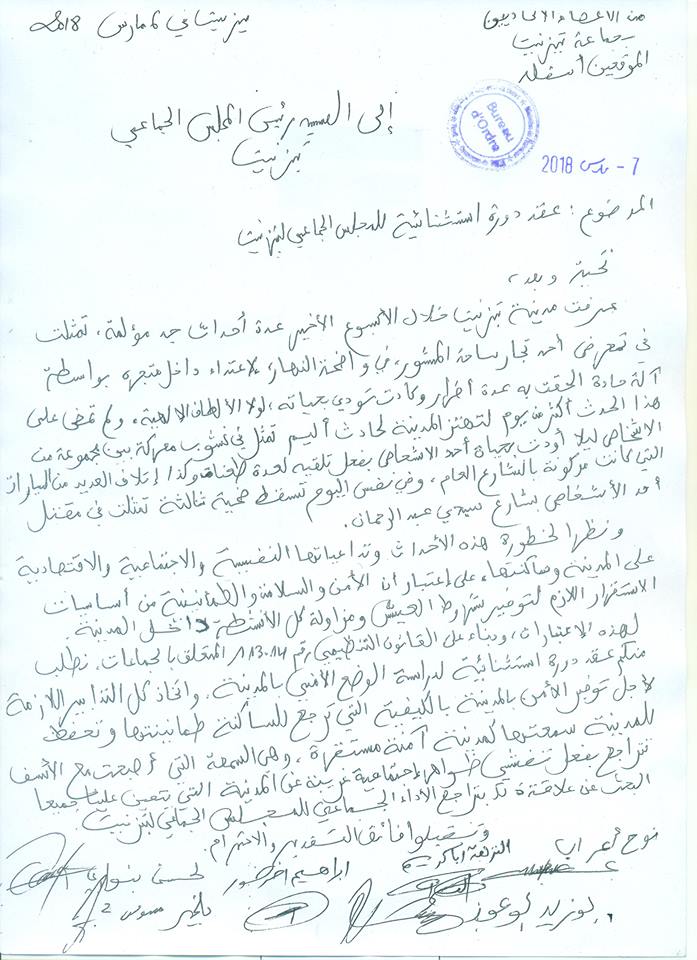 من الأعضاء الاتحاديين
بجماعة تيزنيت
الموقعين أسفله
تيزنيت في 6 مارس 2018
إلى السيد رئيس المجلس الجماعي
تيزنيت
Bureau d'Ordre
7 - مارس 2018
الموضوع : عقد دورة استثنائية للمجلس الجماعي لتيزنيت
تحية وبعد،
عرفت مدينة تيزنيت خلال الأسبوع الأخير عدة أحداث جد مؤلمة، تمثلت
في تعرض أحد تجار ساحة المشور، في واضحة النهار، لاعتداء داخل متجره بواسطة
آلة حادة ألحقت به عدة أضرار وكادت تودي بحياته، لولا الألطاف الإلهية، ولم تمض على
هذا الحدث أكثر من يوم لتهتز المدينة لحادث أليم تمثل في نشوب معركة بين مجموعة من
الأشخاص ليلا أودت بحياة أحد الأشخاص بفعل تلقيه لعدة طعنات وكذا إتلاف العديد من السيارات
التي كانت مركونة بالشارع العام، وفي نفس اليوم تسقط ضحية ثالثة تمثلت في مقتل
أحد الأشخاص بشارع سيدي عبد الرحمان.
ونظرا لخطورة هذه الأحداث وتداعياتها النفسية والاجتماعية والاقتصادية
على المدينة وساكنتها، على إعتبار أن الأمن والسلامة والطمأنينة من أساسات
الاستقرار اللازم لتوفير شروط العيش ومزاولة كل الأنشطة داخل المدينة.
لهذه الاعتبارات، وبناء على القانون التنظيمي رقم 113.14 المتعلق بالجماعات. نطلب
منكم عقد دورة استثنائية لدراسة الوضع الأمني بالمدينة. واتخاذ كل التدابير اللازمة
لأجل توفير الأمن بالمدينة بالكيفية التي ترجع للساكنة طمأنينتها وتحفظ
للمدينة سمعتها كمدينة آمنة مستقرة، وهي السمعة التي أضحت مع الأسف
تتراجع بفعل تفشي ظواهر إجتماعية غريبة عن المدينة التي يتعين علينا جميعا
البحث عن علاقة ذلك بتراجع الأداء الجماعي للمجلس الجماعي لتيزنيت.
وتقبلوا فائق التقدير والاحترام.
نوح أعراب
النزهة أباكريم
ابراهيم
لحسن بنواري
بلخير